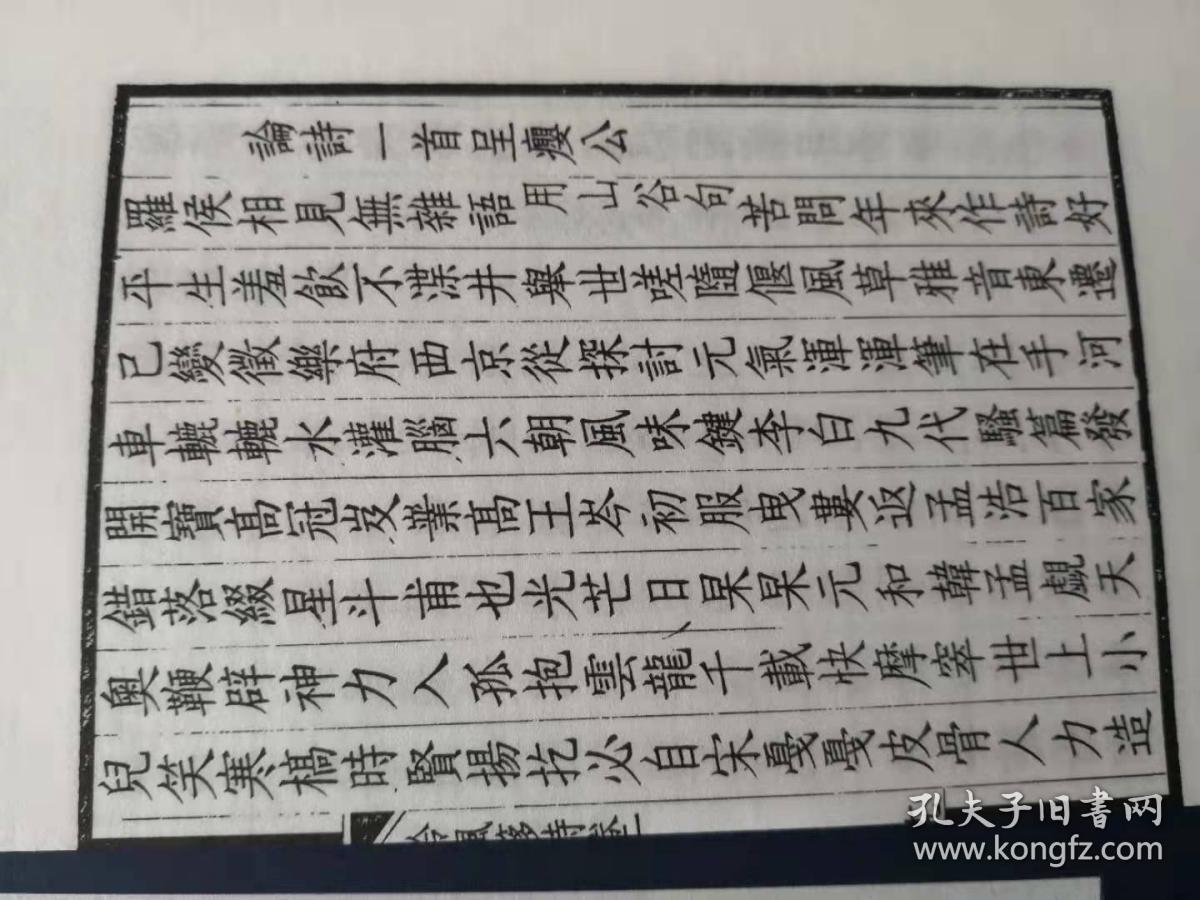 論詩一首呈癭公
羅侯相見無雜語用山谷句苦問年來作詩好
平生羞飲不渫井舉世嗟隨偃風草雅音東遷
已變徵樂府西京從探討元氣渾渾筆在手河
車轆轆水灌腦六朝風味鍵李白九代騷篇發
開寶高冠岌業高王岑初服曳婁返孟浩百家
錯落綴星斗甫也光芒日杲杲元和韓孟覷天
奧鞭辟神力入孤抱雲龍千載快摩窣世上小
兒笑寒槁時賢揚扢必自宋戛戛皮骨人力造
孔夫子旧书网
www.kongfz.com